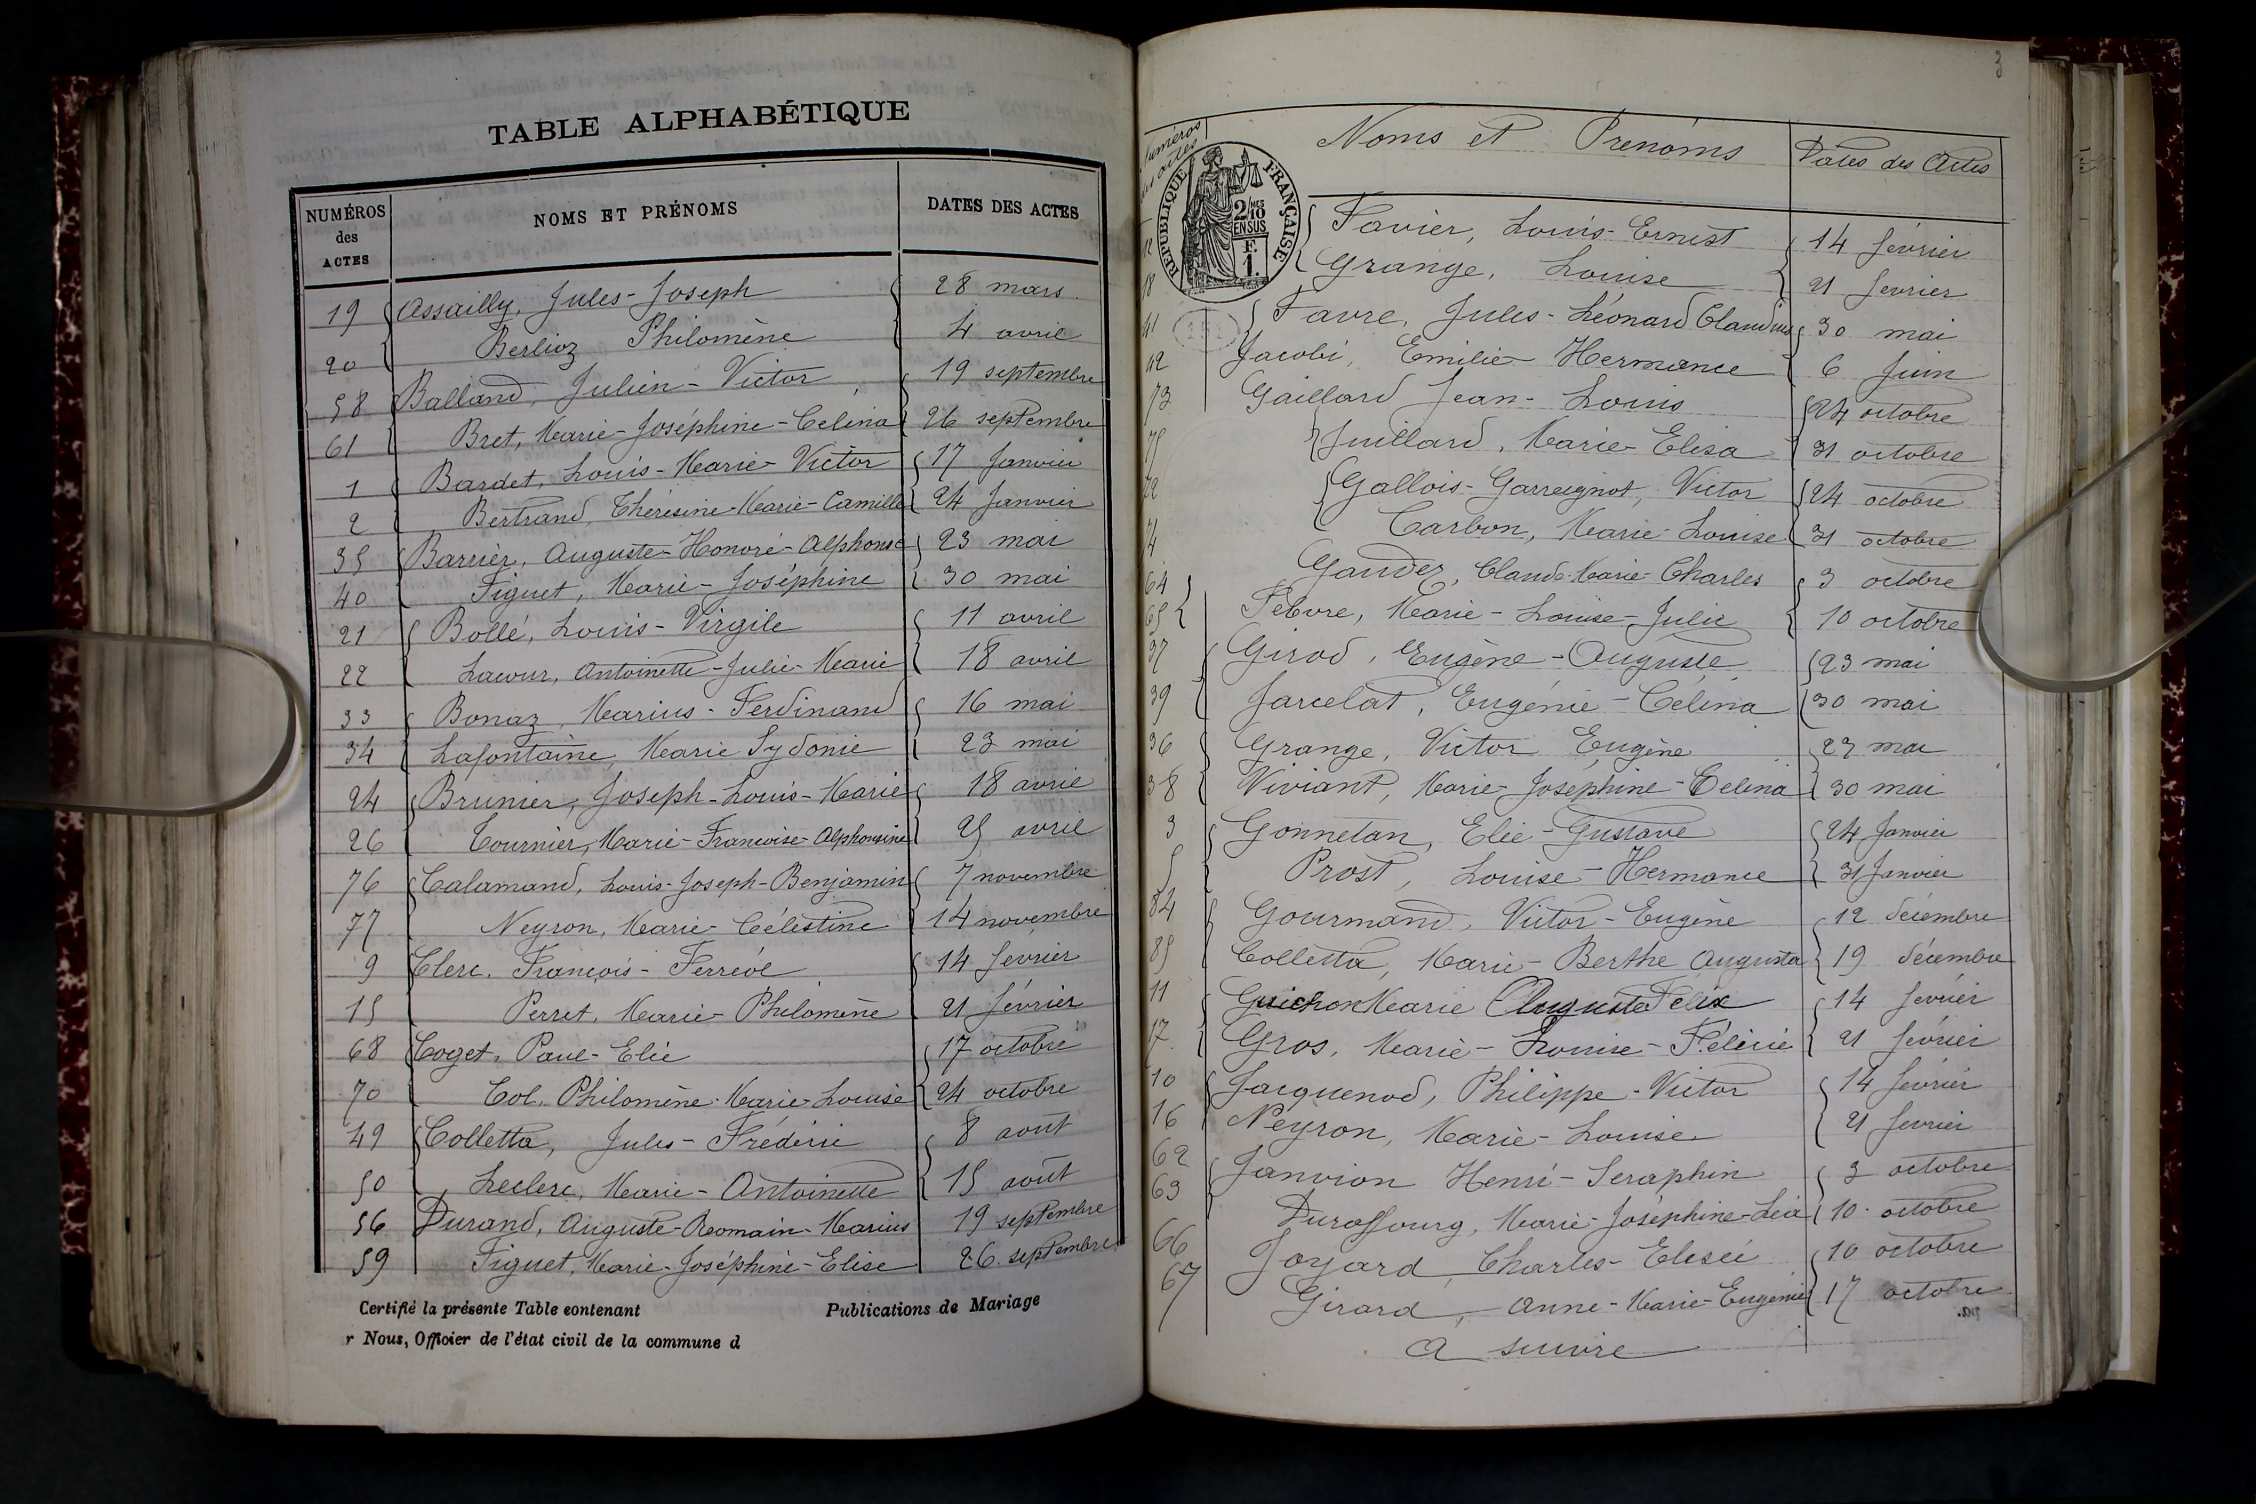 TABLE ALPHABÉTIQUE
NUMÉROS des ACTES NOMS ET PRÉNOMS DATES DES ACTES
19 Assailly, Jules-Joseph 28 mars
20 Berlioz Philomène 4 avril
58 Balland, Julien-Victor 19 septembre
61 Bret, Marie-Joséphine-Célina 26 septembre
1 Bardet, Louis-Marie-Victor 17 Janvier
2 Bertrand, Thérésine-Marie-Camille 24 Janvier
35 Barrier, Auguste-Honoré-Alphonse 23 mai
40 Figuet, Marie-Joséphine 30 mai
21 Bollé, Louis-Virgile 11 avril
22 Lacour, Antoinette-Julie-Marie 18 avril
33 Bonaz, Marius-Ferdinand 16 mai
34 Lafontaine, Marie Sydonie 23 mai
24 Brunier, Joseph-Louis-Marie 18 avril
26 Tournier, Marie-Francoise-Alphonsine 25 avril
76 Calamand, Louis-Joseph-Benjamin 7 novembre
77 Neyron, Marie-Célestine 14 novembre
9 Clerc, François-Ferréol 14 fevrier
15 Perret, Marie-Philomène 21 février
68 Coget, Paul-Elie 17 octobre
70 Col, Philomène-Marie-Louise 24 octobre
49 Colletta, Jules-Frédéric 8 aout
50 Leclerc, Marie-Antoinette 15 août
56 Durand, Auguste-Romain-Marius 19 septembre
59 Figuet, Marie-Joséphine-Elise 26 septembre
Certifié la présente Table contenant Publications de Mariage
r Nous, Officier de l'état civil de la commune d
3
Numéros des actes Noms et Prénoms Dates des Actes
RÉPUBLIQUE FRANÇAISE
2/10 MES EN SUS
F. 1.
12 Favier, Louis-Ernest 14 février
18 Grange, Louise 21 fevrier
41 Favre, Jules-Léonard Claudius 30 mai
42 Jacobi, Emilie Hermance 6 Juin
73 Gaillard Jean-Louis 24 octobre
75 Juillard, Marie-Elisa 31 octobre
72 Gallois-Garreignot, Victor 24 octobre
74 Carbon, Marie-Louise 31 octobre
64 Gandez, Claude-Marie-Charles 3 octobre
65 Febvre, Marie-Louise-Julie 10 octobre
37 Girod, Eugène-Auguste 23 mai
39 Jarcelat, Eugénie-Célina 30 mai
36 Grange, Victor Eugène 23 mai
38 Viviant, Marie-Josephine-Celina 30 mai
3 Gonnetan, Elie-Gustave 24 Janvier
5 Prost, Louise-Hermance 31 Janvier
84 Gourmand, Victor-Eugène 12 décembre
85 Colletta, Marie-Berthe Augusta 19 décembre
11 Guichon Marie Auguste Felix 14 fevrier
17 Gros, Marie-Louise-Félicie 21 février
10 Jacquenod, Philippe-Victor 14 février
16 Neyron, Marie-Louise 21 fevrier
62 Janvion Henri-Seraphin 3 octobre
63 Duraffourg, Marie-Joséphine-Léa 10 octobre
66 Joyard Charles-Elisée 10 octobre
67 Girard, Anne-Marie-Eugénie 17 octobre
A suivre